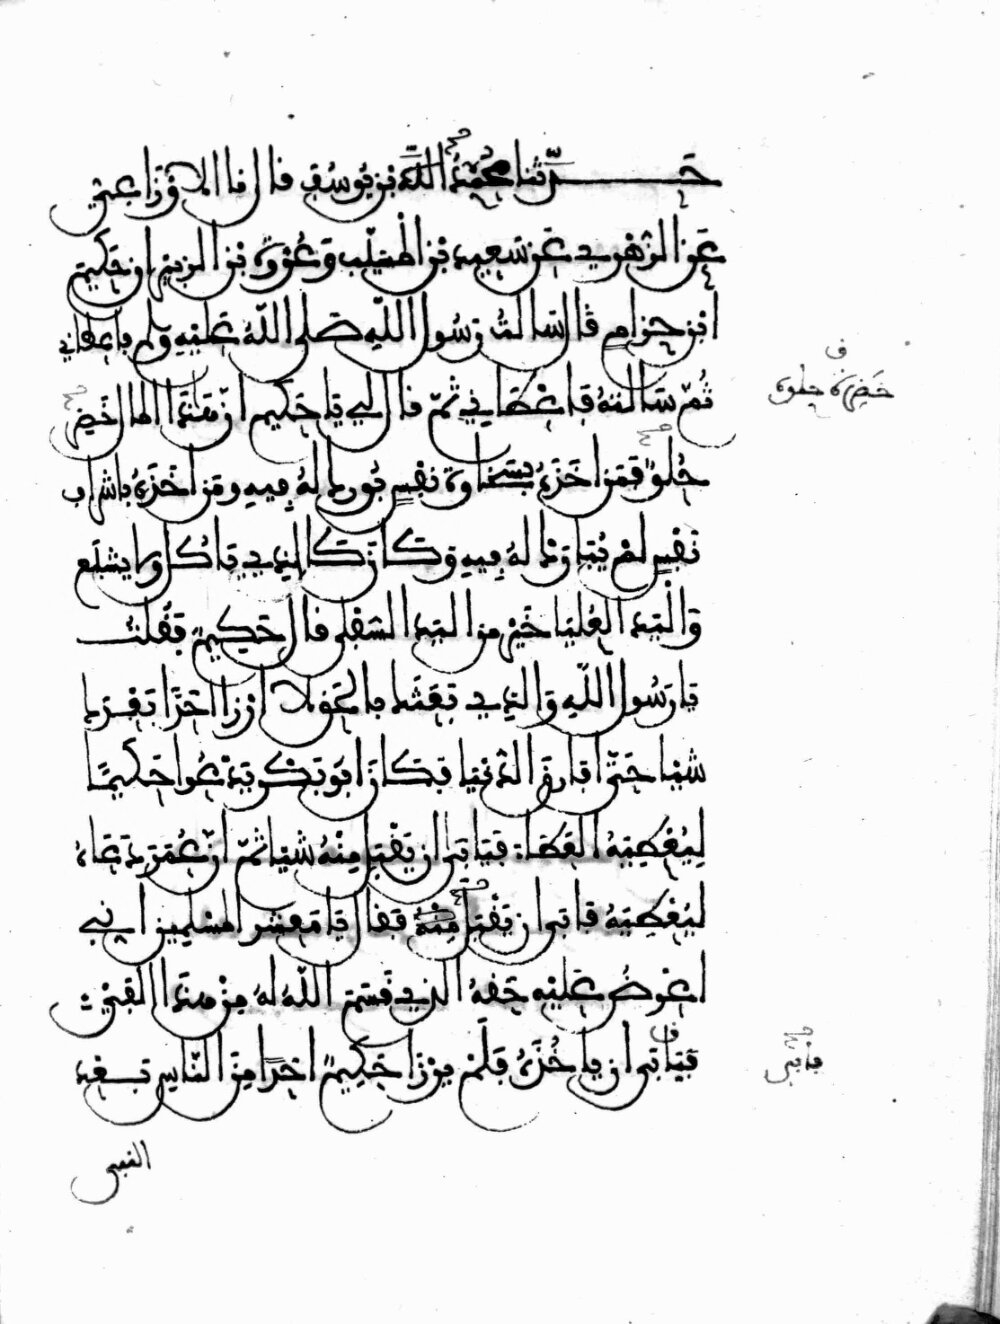 حدثنا محمد بن يوسف قال نا الاوزاعي
عن الزهري عن سعيد بن المسيب وعروة بن الزبير ان حكيم
ابن حزام قال سالت رسول الله صلى الله عليه وسلم فاعطاني
ثم سالته فاعطاني ثم قال لي يا حكيم ان هذا المال خضر
حلو فمن اخذه بسخاوة نفس بورك له فيه ومن اخذه باشراف
نفس لم يبارك له فيه وكان كالذي ياكل ولا يشبع
واليد العليا خير من اليد السفلى قال حكيم فقلت
يا رسول الله والذي بعثك بالحق لا ارزا احدا بعدك
شيا حتى افارق الدنيا فكان ابو بكر يدعوا حكيما
ليعطيه العطاء فيابى ان يقبل منه شيا ثم ان عمر دعاه
ليعطيه فابى ان يقبل منه فقال يا معشر المسلمين اني
اعرض عليه حقه الذي قسم الله له من هذا الفيء
فيابى ان ياخذه فلم يرزا حكيم احدا من الناس بعد
النبي
خضرة حلوة
فابى